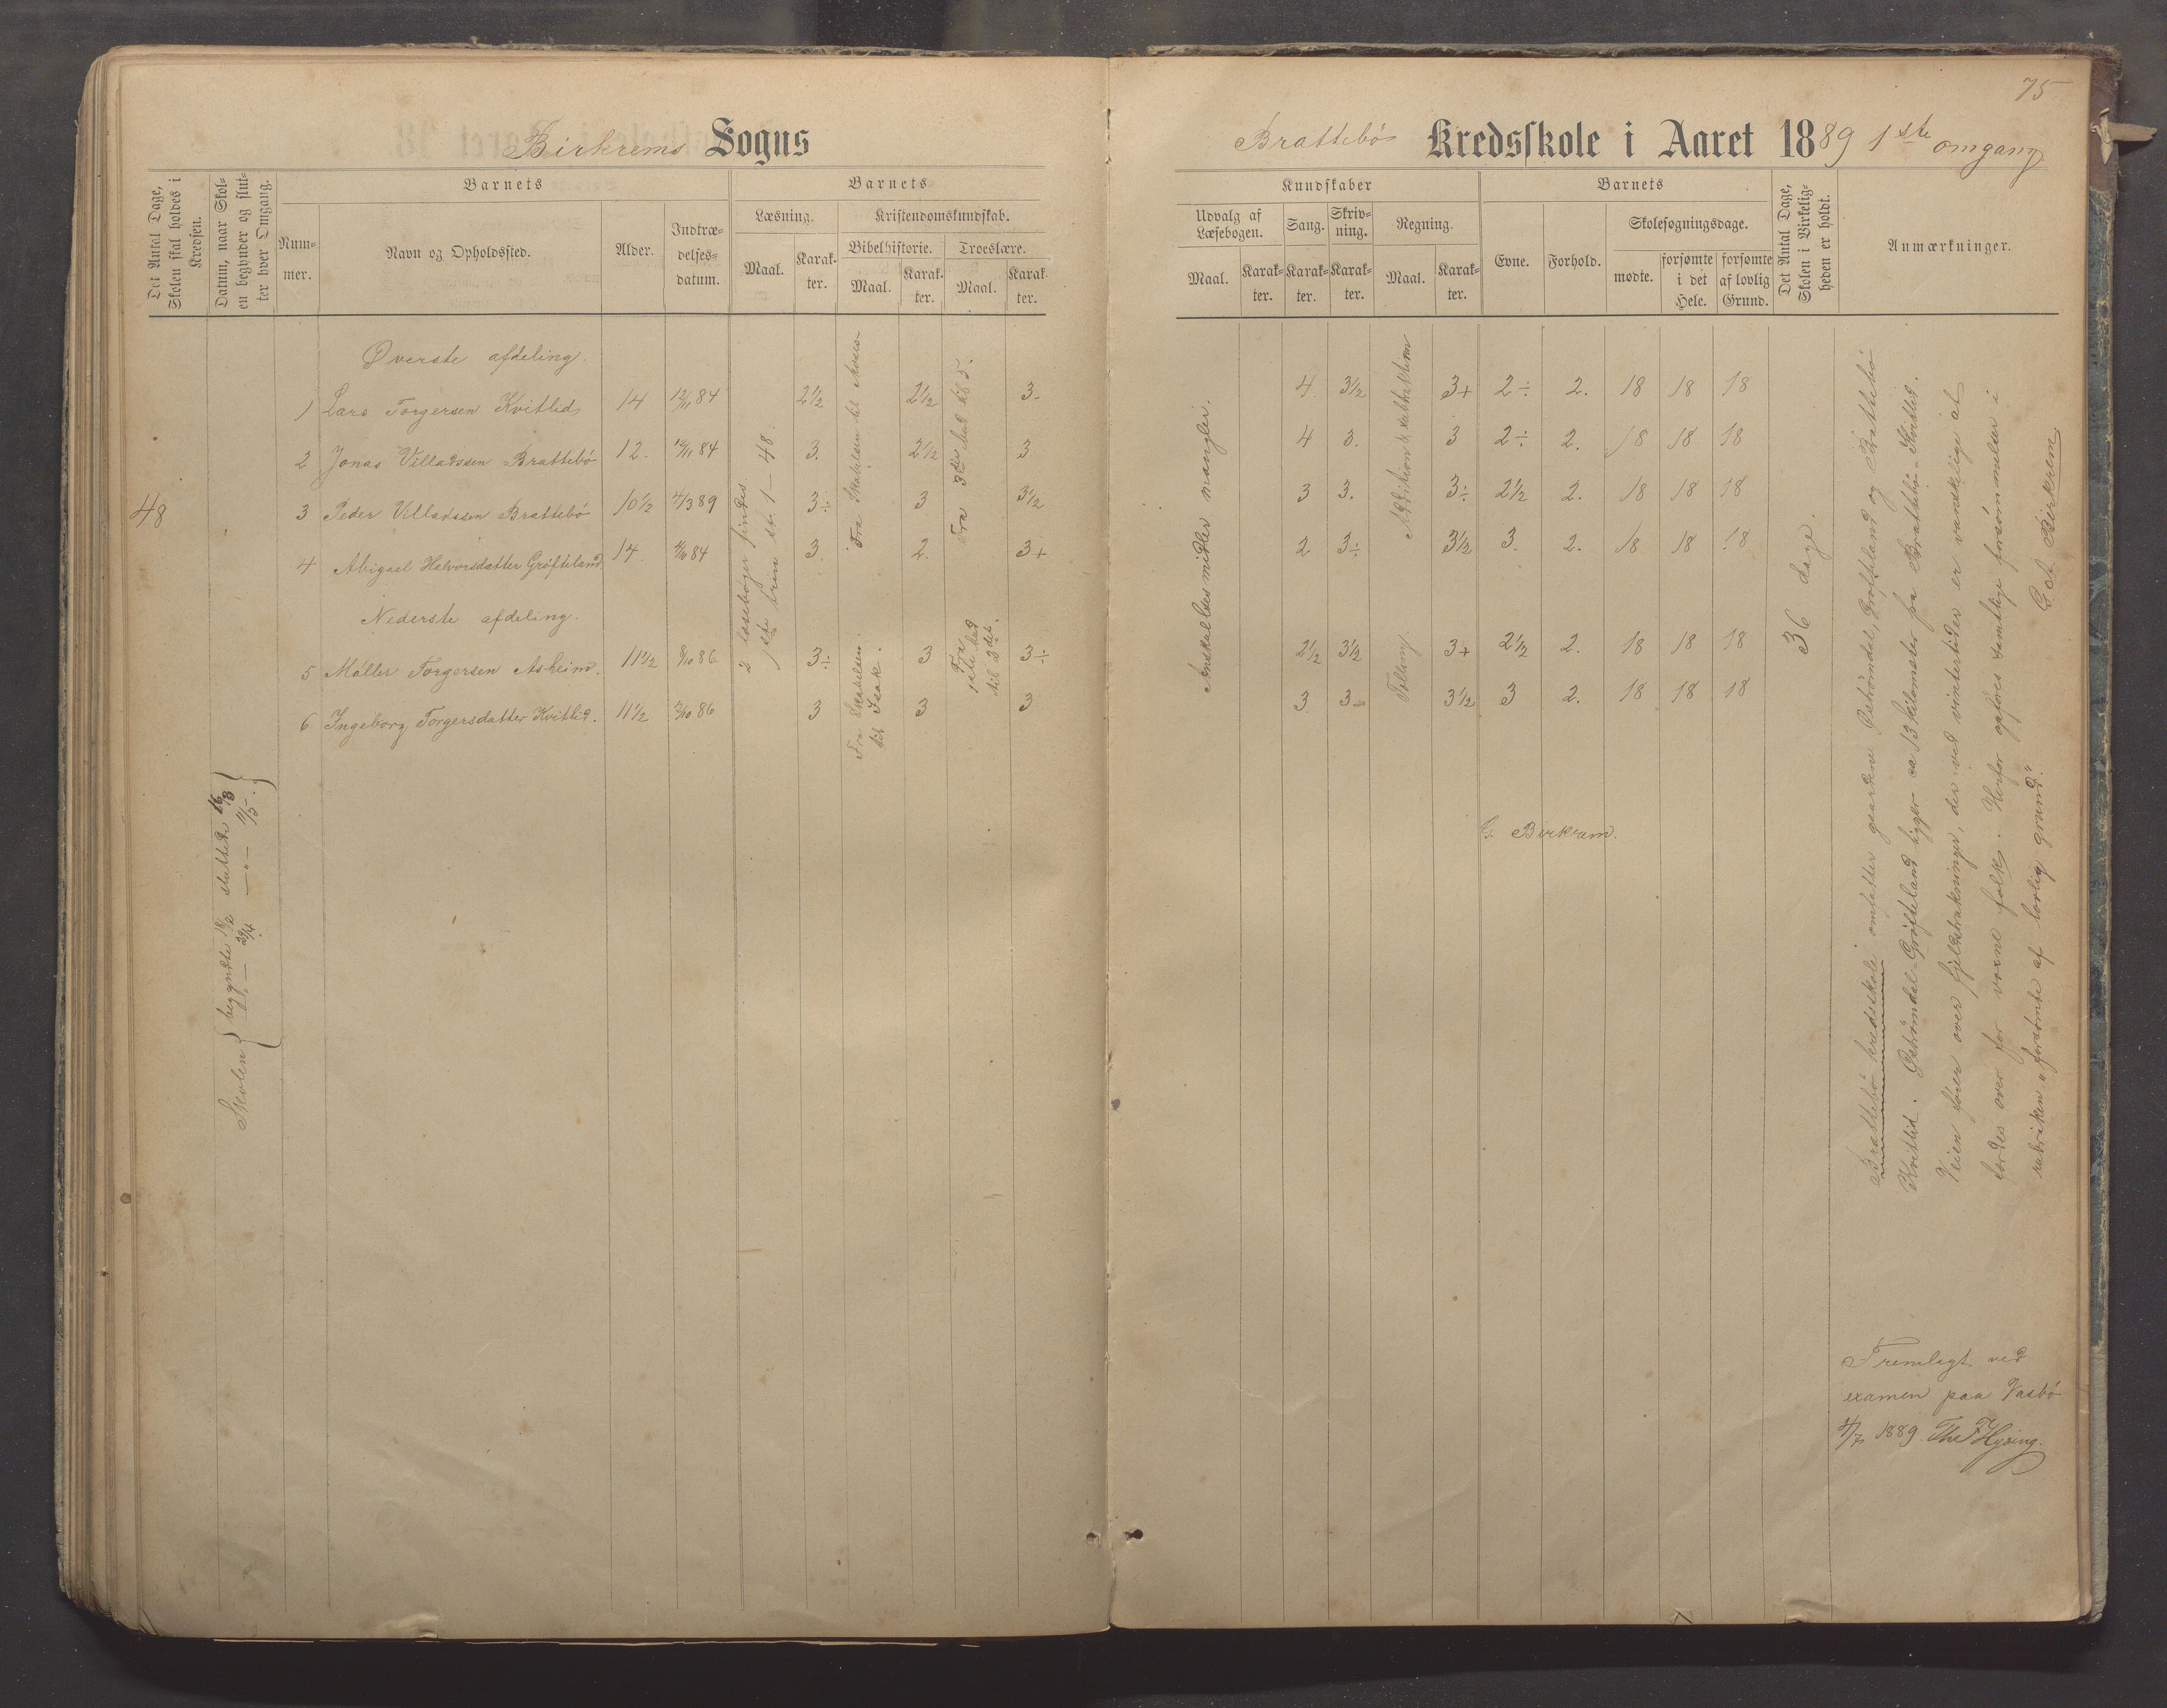 75
Birkrems Sogns
Brattebø Kredsskole i Aaret 1889 1ste omgang
Det Antal Dage, Skolen skal holdes i Kredsen.
Datum, naar Skolen begynder og slutter hver Omgang.
Barnets
Nummer.
Navn og Opholdssted.
Alder.
Indtrædelsesdatum.
Barnets
Læsning.
Maal.
Karakter.
Kristendomskundskab.
Bibelhistorie.
Maal.
Karakter.
Troeslære.
Maal.
Karakter.
Kundskaber
Udvalg af Læsebogen.
Maal.
Karakter.
Sang.
Karakter.
Skrivning.
Karakter.
Regning.
Maal.
Karakter.
Barnets
Evne.
Forhold.
Skolesøgningsdage.
mødte.
forsømte i det Hele.
forsømte af lovlig Grund.
Det Antal Dage, Skolen i Virkeligheden er holdt.
Anmærkninger.
Øverste afdeling.
1 Lars Torgersen Kvitlid 14 12/11 84 2½ 2½ 3- 4 3½ 3+ 2÷ 2. 18 18 18
2 Jonas Villadssen Brattebø 12. 12/11 84 3. 2½ 3 4 3. 3 2÷ 2. 18 18 18
3 Peder Villadssen Brattebø 10½ 4/3 89 3÷ 3 3½ 3 3. 3÷ 2½ 2. 18 18 18
4 Abigael Halvorsdatter Grøfteland 14 /10 84 3. 2. 3+ 2 3÷ 3½ 3. 2. 18 18 18
Nederste afdeling.
5 Møller Torgersen Asheim. 11½ 8/10 86 3÷ 3 3÷ 2½ 3½ 3+ 2½ 2. 18 18 18
6 Ingeborg Torgersdatter Kvitlid. 11½ /10 86 3 3 3 3 3- 3½ 3 2. 18 18 18
48
Skolen { begyndte 18/2 sluttede 16/3 }
— 29/4 —„— 11/5.
2 læsebøger findes
1ste trin st. 1 – 48.
Fra Skabelsen til Moses
Fra 3die bud til 5.
Fra Skabelsen til Isak.
Fra 1ste bud til 3det.
Anskaltesmidler mangler.
Addition & subtraktion
Tælling.
36 dage.
G. Birkrem.
Brattebø kredsskole omfatter gaardene Østrømdal, Grøfteland og Brattebø
Kvitlid. Østrømdal-Grøfteland ligger ca 13 kilometer fra Brattebø-Kvitlid.
Veien fører over fjeldstrækninger, der ved vintertider er vanskelige at
færdes over for voxne folk. Herfor opføres samtlige forsømmelser i
rubriken „forsømte af lovlig grund".
G A Birkrem
Fremlagt ved
examen paa Vasbø
4/7 1889. The FHysing.